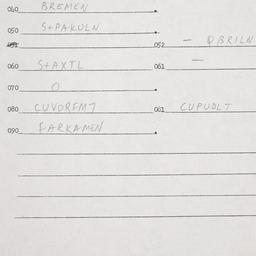 040 BREMEN
050 S+PAKULN
051 052 — QBRILN
060 S+AXTL 061 —
070 O
080 CUVDRFMT 061 CUPUDLT
090 FARKAMEN